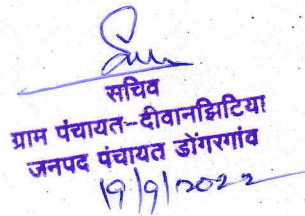 सचिव
ग्राम पंचायत-दीवानझिटिया
जनपद पंचायत डोंगरगांव
19/9/2022